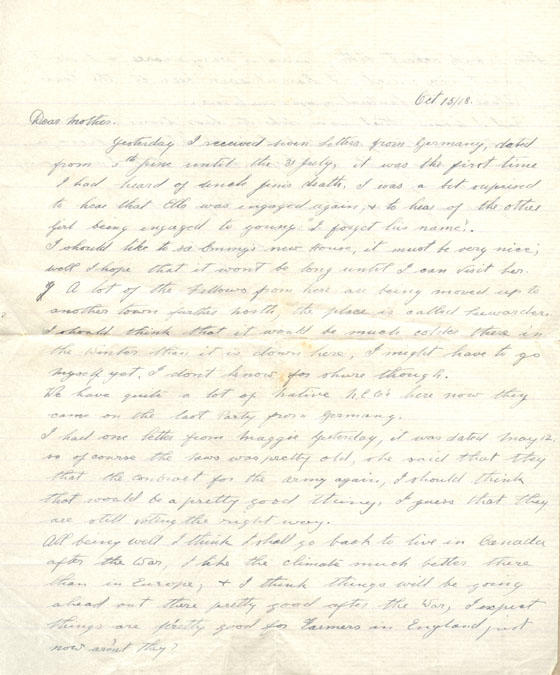 Oct 15/18.
Dear Mother.
Yesterday I received seven letters from Germany, dated
from 5th June until the 31 July, it was the first time
I had heard of Uncle Jim's death, I was a bit
to hear that Ella was engaged again, & to hear of the other
girl being engaged to young I forget his name.
I should like to se Emmy's new House, it must be very nice;
well I hope that it wont be long until I can visit her.
A lot of the fellows from here are being moved up to
another town further north, the place is called
I should think that it would be much colder there in
the winter than it is down here, I might have to go
myself yet, I dont know for shure though.
We have quite a lot of native N.C.O's here now they
came on the last Party from Germany.
I had one letter from Maggie yesterday, it was dated May 12.
so of course the news was pretty old, she said that they
that the contract for the army again, I should think
that would be a pretty good thing, I guess that they
are still voting the right way.
All being well I think I shall go back to live in Canada
after the War, I like the climate much better there
than in Europe, & I think things will be going
ahead out there pretty good after the War, I expect
things are pretty good for Farmers in England just
now arn't they?